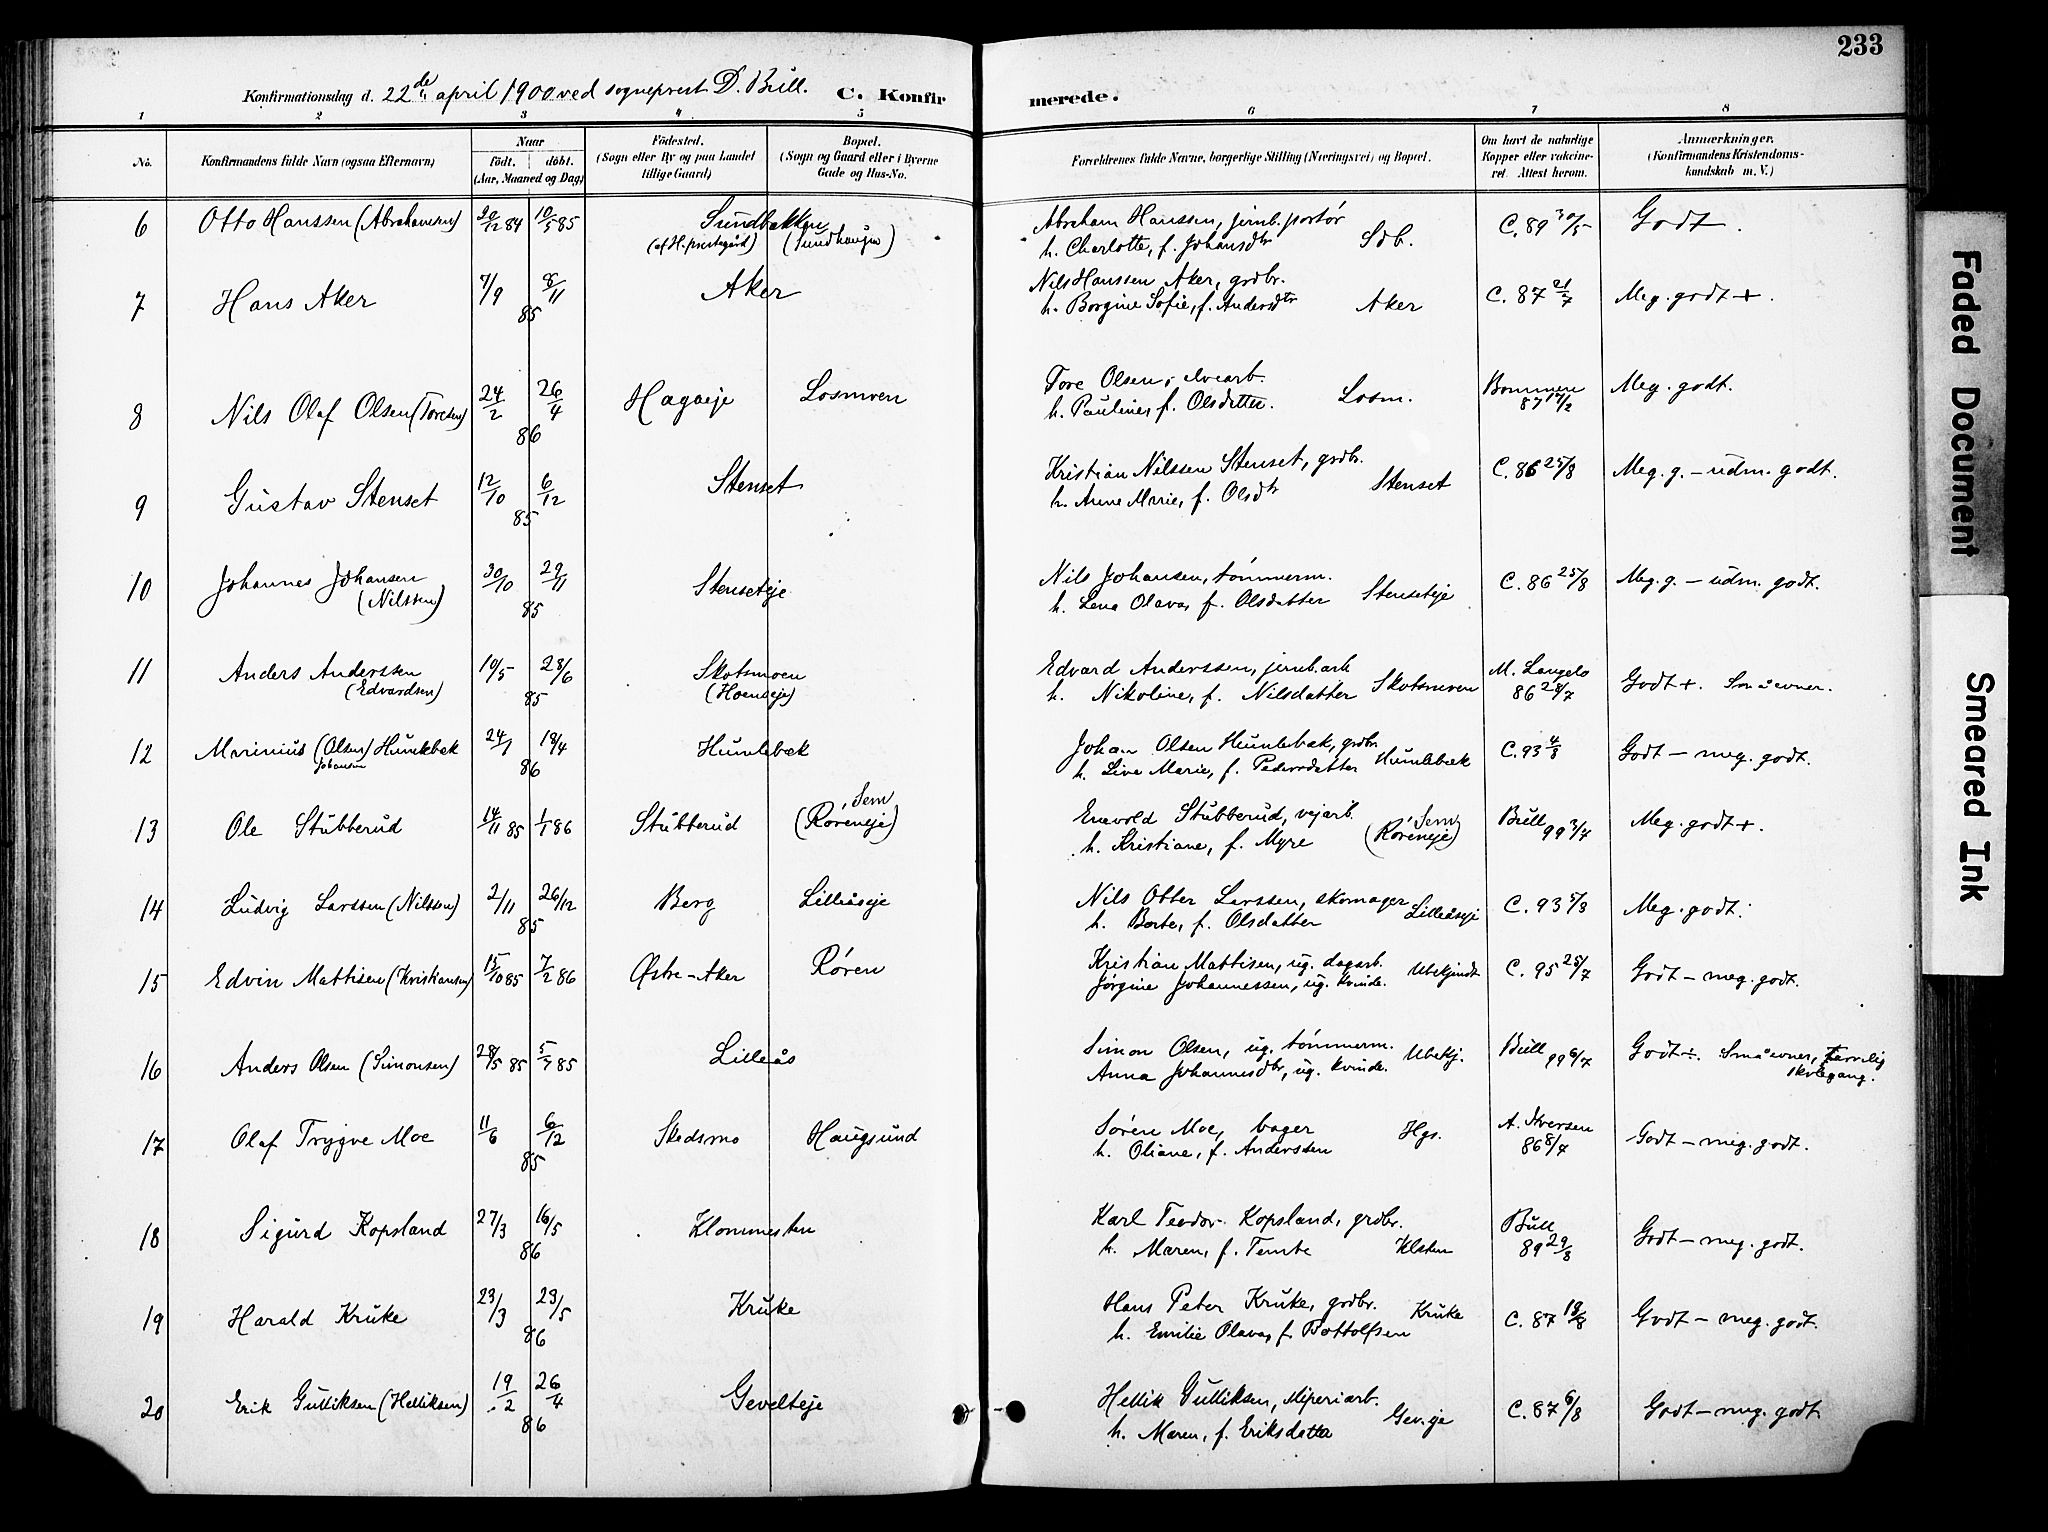 233
Konfirmationsdag d. 22de april 1900 ved sogneprest D. Bull. C. Konfirmerede.
1 2 3 4 5 6 7 8
No. Konfirmandens fulde Navn (ogsaa Efternavn) Naar födt. döbt. (Aar, Maaned og Dag) Födested. (Sogn eller By og paa Landet tillige Gaard) Bopæl. (Sogn og Gaard eller i Byerne Gade og Hus-No. Forældrenes fulde Navne, borgerlige Stilling (Næringsvei) og Bopæl. Om havt de naturlige Kopper eller vakcineret. Attest herom. Anmærkninger. (Konfirmandens Kristendomskundskab m. V.)
6 Otto Hanssen (Abrahamsen) 30/12 84 10/5 85 Sundbakken (af H. prestegård) (Sundhaugen) Abraham Hanssen, jernb. portør Sdb. C. 89 30/5 Godt.
h. Charlotte, f. Johansdtr
7 Hans Aker 7/9 8/11 85 Aker Nils Hanssen Aker, grdbr. Aker C. 87 21/7 Meg. godt +.
h. Borgine Sofie, f. Andersdtr
8 Nils Olaf Olsen (Toresen) 24/2 26/4 86 Hagaeje Losmoen Tore Olsen, elvearb. Losm. Bommen 87 12/2 Meg. godt.
h. Pauline, f. Olsdatter.
9 Gustav Stenset 12/10 6/12 85 Stenset Kristian Nilssen Stenset, grdbr. Stenset C. 86 25/8 Meg. g. – udm. godt.
h. Anne Marie, f. Olsdtr
10 Johannes Johansen (Nilssen) 30/10 29/11 85 Stenseteje Nils Johansen, tömmerm. Stenseteje C. 86 25/8 Meg. g. – udm. godt.
h. Lena Olava, f. Olsdatter
11 Anders Anderssen (Edvardsen) 10/5 28/6 85 Skotsmoen (Hoenseje) Edvard Anderssen, jernb.arb Skotsmoen M. Langelo 86 28/7 Godt +. Små evner.
h. Nikoline, f. Nilsdatter
12 Marinius (Olsen) Humlebæk Johansen 24/1 18/4 86 Humlebæk Johan Olsen Humlebæk, grdbr Humlebæk C. 93 4/8 Godt – meg. godt.
h. Live Marie, f. Pedersdatter
13 Ole Stubberud 14/11 85 1/1 86 Stubberud Sem (Röreneje) Enevold Stubberud, vejarb. Sem (Röreneje) Bull 99 3/7 Meg. godt +.
h. Kristiane, f. Myre
14 Ludvig Larssen (Nilssen) 2/11 26/12 85 Berg Lilleåseje Nils Otter Larssen, skomager Lilleåseje C. 93 5/8 Meg. godt.
h. Berte, f. Olsdatter
15 Edvin Mattisen (Kristiansen) 15/10 85 7/2 86 Østre-Aker Røren Kristian Mattisen, ug. dagarb. Ubekjendt C. 95 25/7 Godt – meg. godt.
Jörgine Johannessen, ug. kvinde.
16 Anders Olsen (Simonsen) 28/5 85 5/7 85 Lilleås Simon Olsen, ug. tömmerm. Ubekj. Bull 99 6/7 Godt ÷. Små evner, tarvelig skolegang.
Anna Johannesdtr, ug. kvinde.
17 Olaf Trygve Moe 11/6 6/12 85 Skedsmo Haugsund Søren Moe, bager Hgs. A. Iversen 86 8/7 Godt – meg. godt.
h. Oliane, f. Anderssen
18 Sigurd Kopsland 27/3 16/5 86 Klommesten Karl Teodor Kopsland, grdbr. Klsten Bull 89 29/8 Godt – meg. godt.
h. Maren, f. Temte
19 Harald Kruke 23/3 23/5 86 Kruke Hans Peter Kruke, grdbr. Kruke C. 87 18/8 Godt – meg. godt.
h. Emilie Olava, f. Bottolfsen
20 Erik Gulliksen (Helliksen) 19/2 26/4 86 Gevelteje Hellik Gulliksen, sliperiarb. Gev.eje C. 87 6/8 Godt – meg. godt
h. Maren, f. Eriksdatter
Faded Document
Smeared Ink